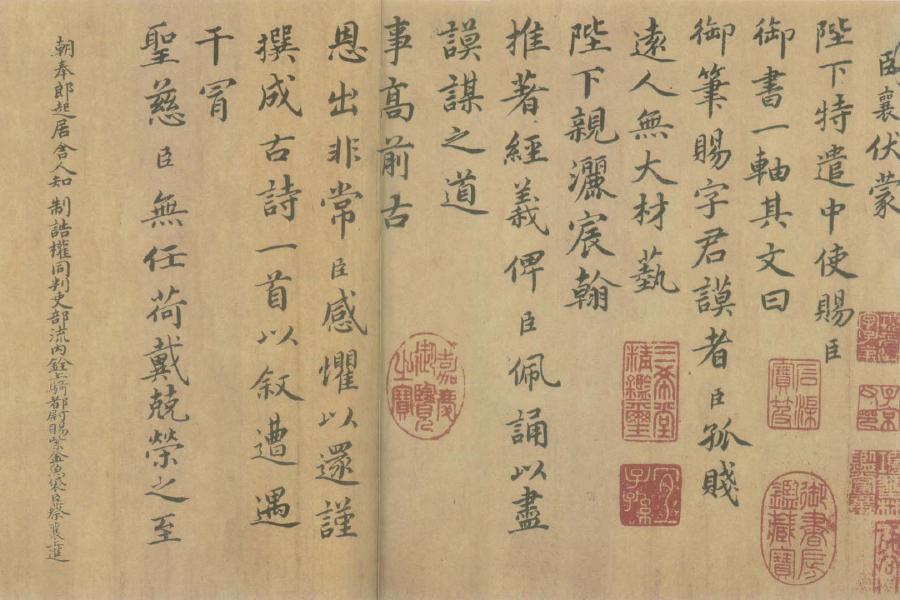 臣襄伏蒙
陛下特遣中使賜臣
御書一軸其文曰
御筆賜字君謨者臣孤賤
遠人無大材藝
陛下親灑宸翰
推著經義俾臣佩誦以盡
謨謀之道
事高前古
恩出非常臣感懼以還謹
撰成古詩一首以叙遭遇
干冒
聖慈臣無任荷戴兢榮之至
朝奉郎起居舍人知 制誥權同判吏部流内銓上騎都尉賜紫金魚袋臣蔡襄進
石渠寶笈
御書房鑑藏寶
三希堂精鑑璽
宜子孫
嘉慶御覽之寶